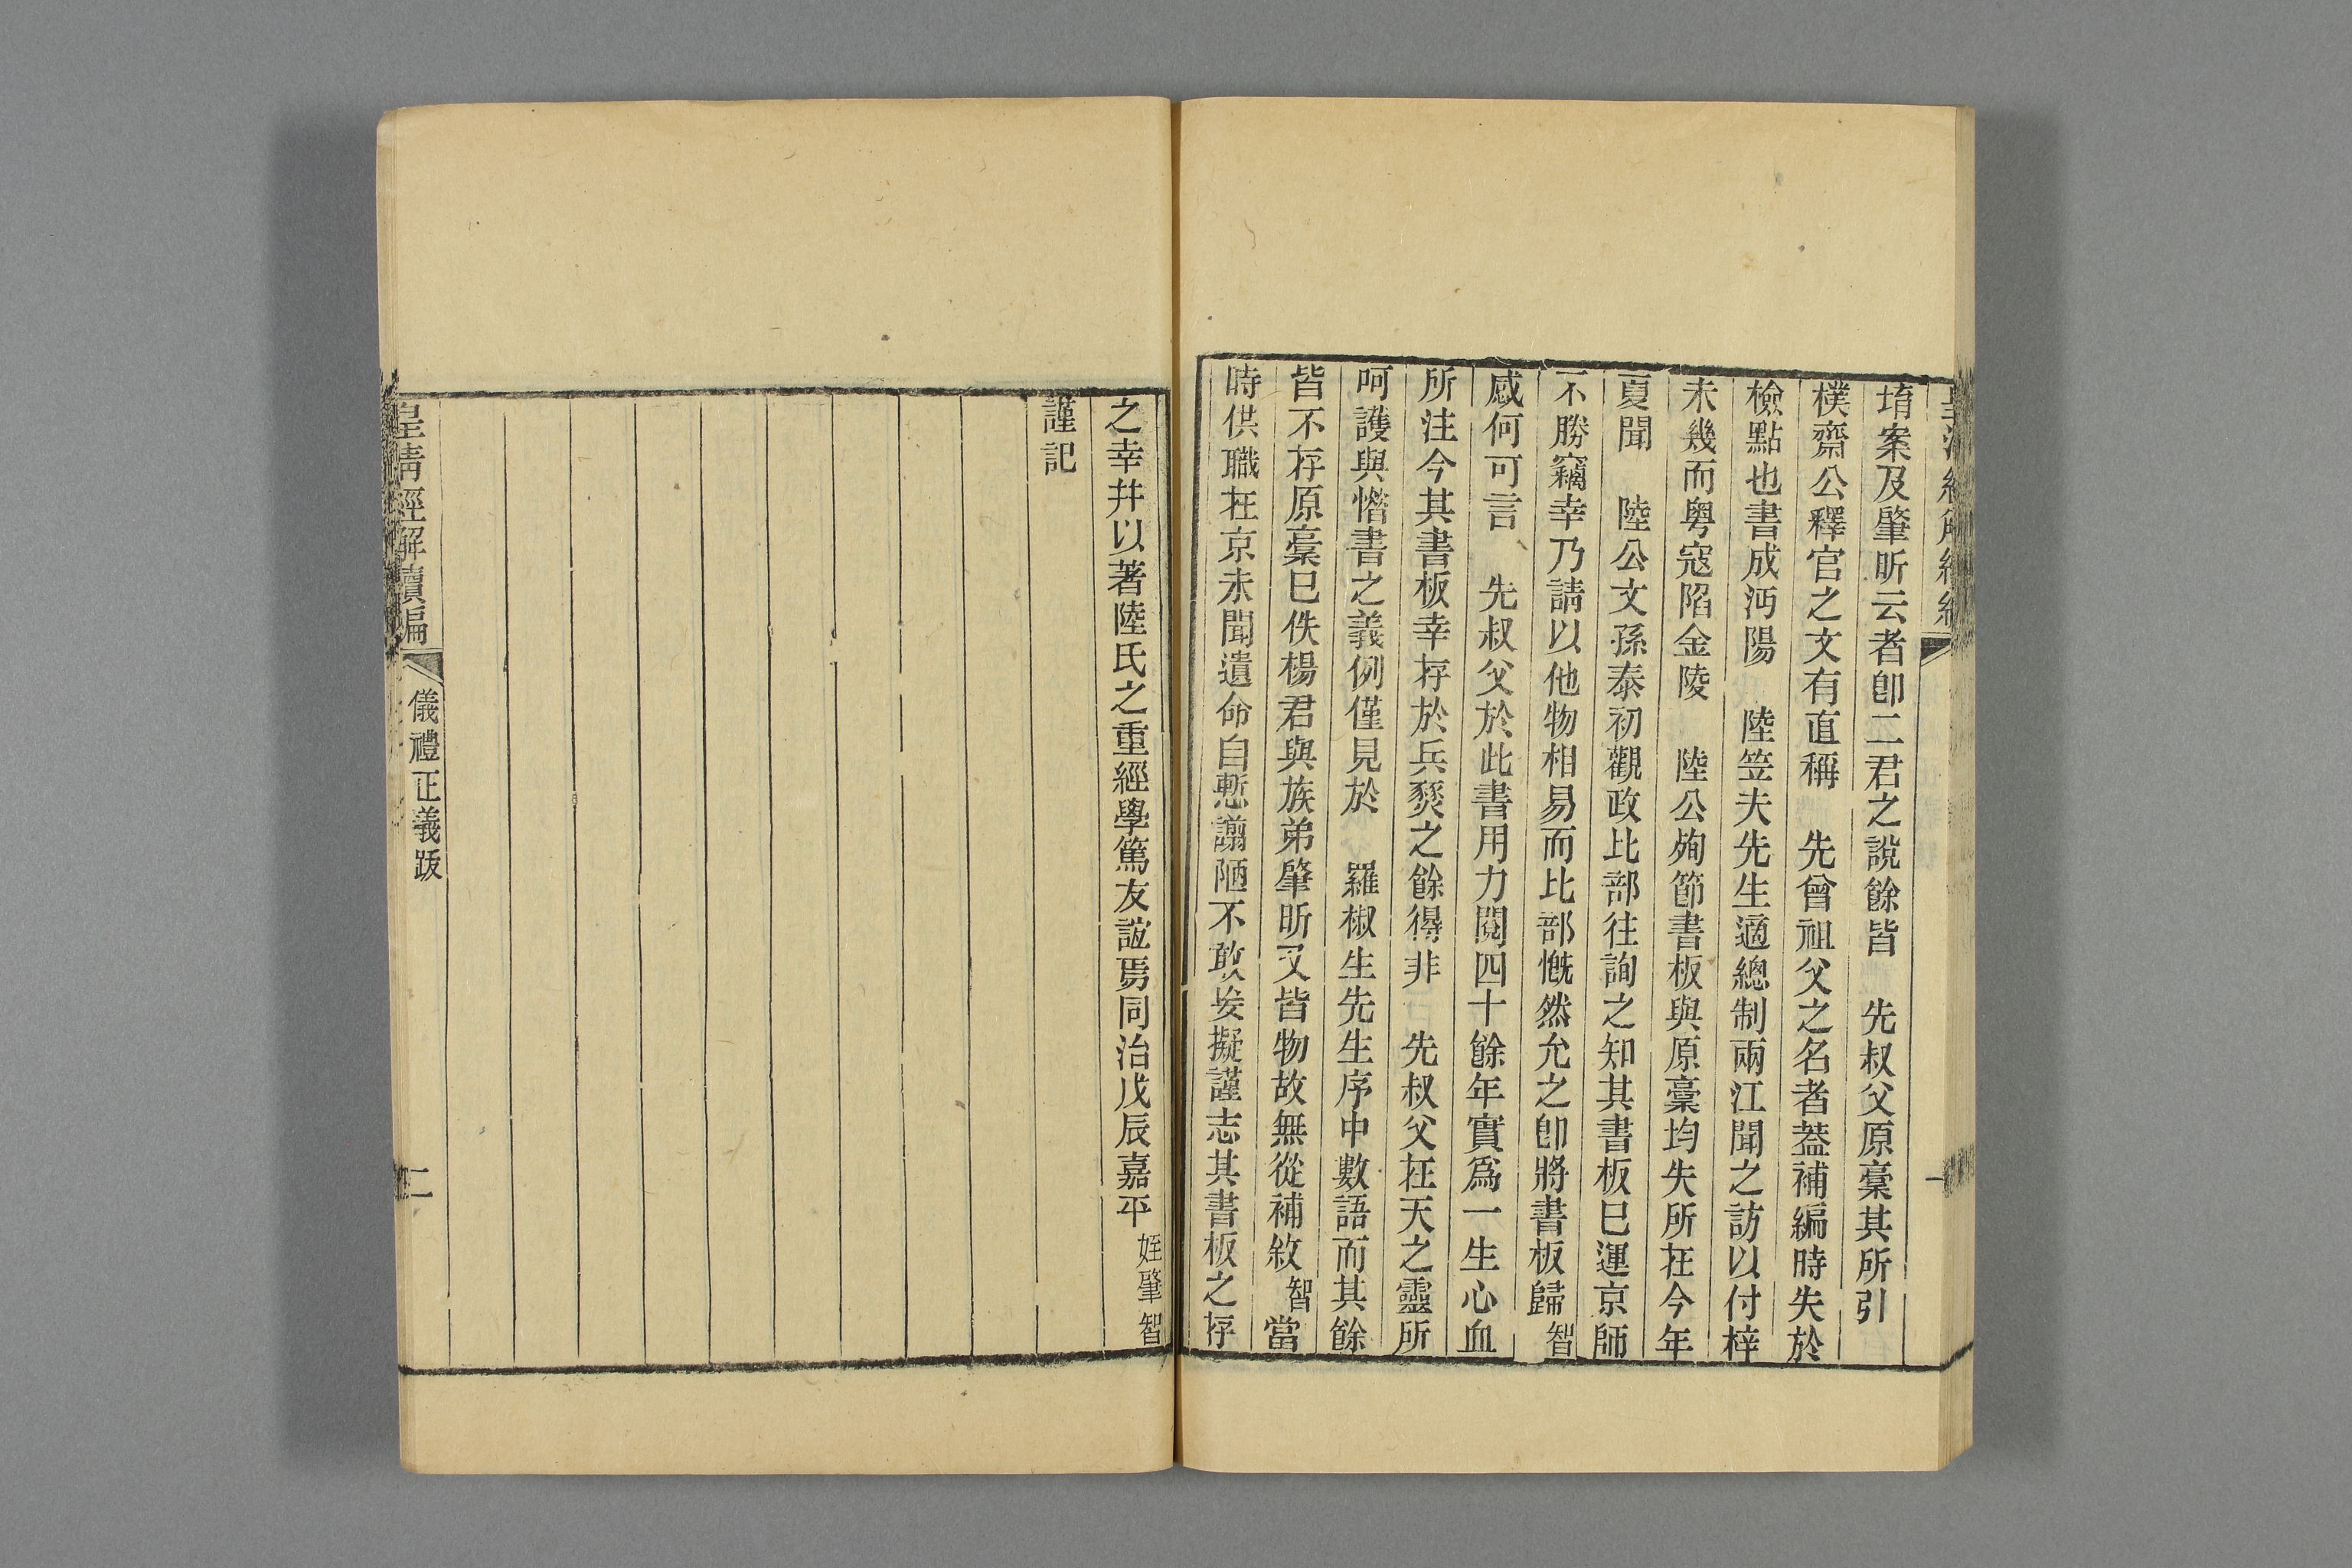 堉案及肇昕云者卽二君之說餘皆　先叔父原稾其所引
樸齋公釋官之文有直稱　先曾祖父之名者葢補編時失於
檢點也書成沔陽　陸笠夫先生適總制兩江聞之訪以付梓
未幾而粤寇陷金陵　陸公殉節書板與原稾均失所在今年
夏聞　陸公文孫泰初觀政比部往詢之知其書板已運京師
不勝竊幸乃請以他物相易而比部慨然允之卽將書板歸智
感何可言　先叔父於此書用力閱四十餘年實爲一生心血
所注今其書板幸存於兵燹之餘得非　先叔父在天之靈所
呵護與惜書之義例僅見於　羅椒生先生序中數語而其餘
皆不存原稾已佚楊君與族弟肇昕又皆物故無從補敘智當
時供職在京未聞遺命自慙譾陋不敢妄擬謹志其書板之存
之幸幷以著陸氏之重經學篤友誼焉同治戊辰嘉平姪肇智
謹記
皇清經解續編
儀禮正義跋
二